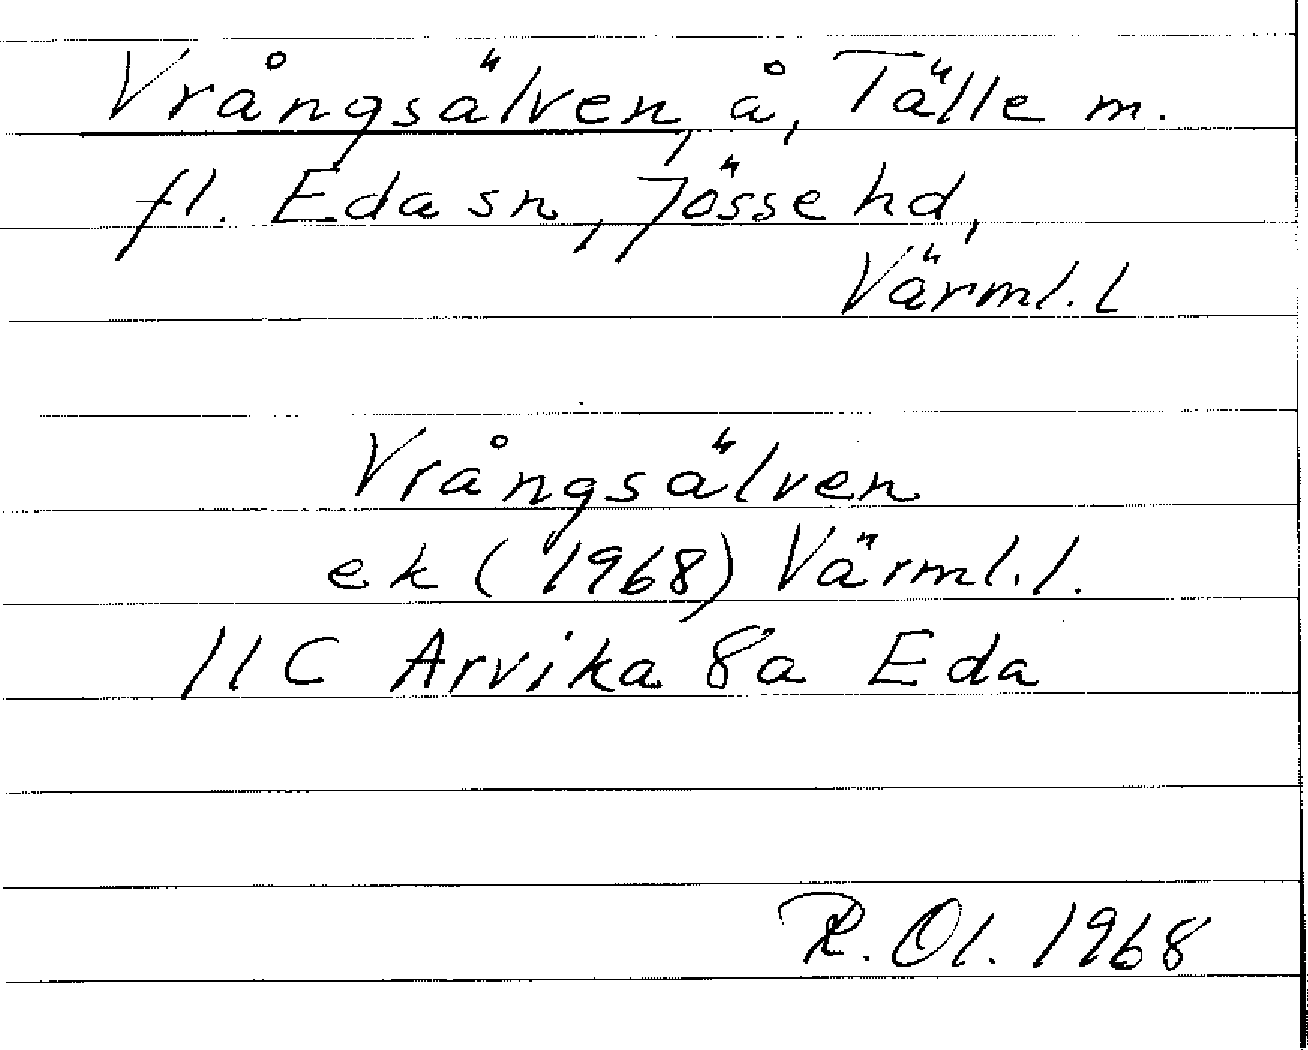 Vrångsälven, å, Tälle m.
fl. Eda sn, Jösse hd,
Värml. l
Vrångsälven
ek (1968) Värml. l.
11C Arvika 8a Eda
R. Ol. 1968